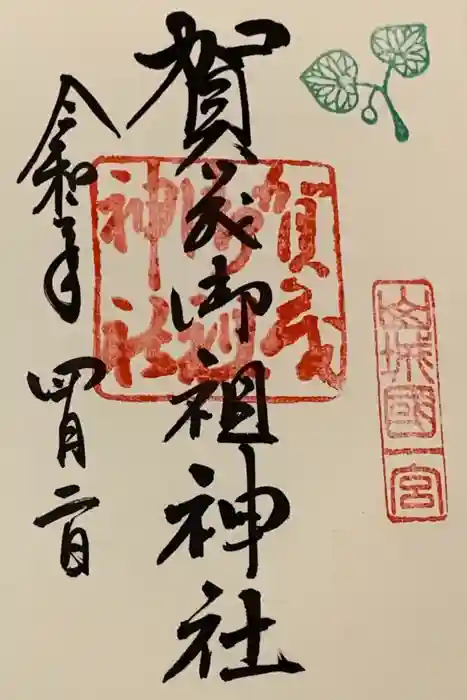 山城國一宮
賀茂御祖神社
賀茂
御祖
神社
令和二年四月二日